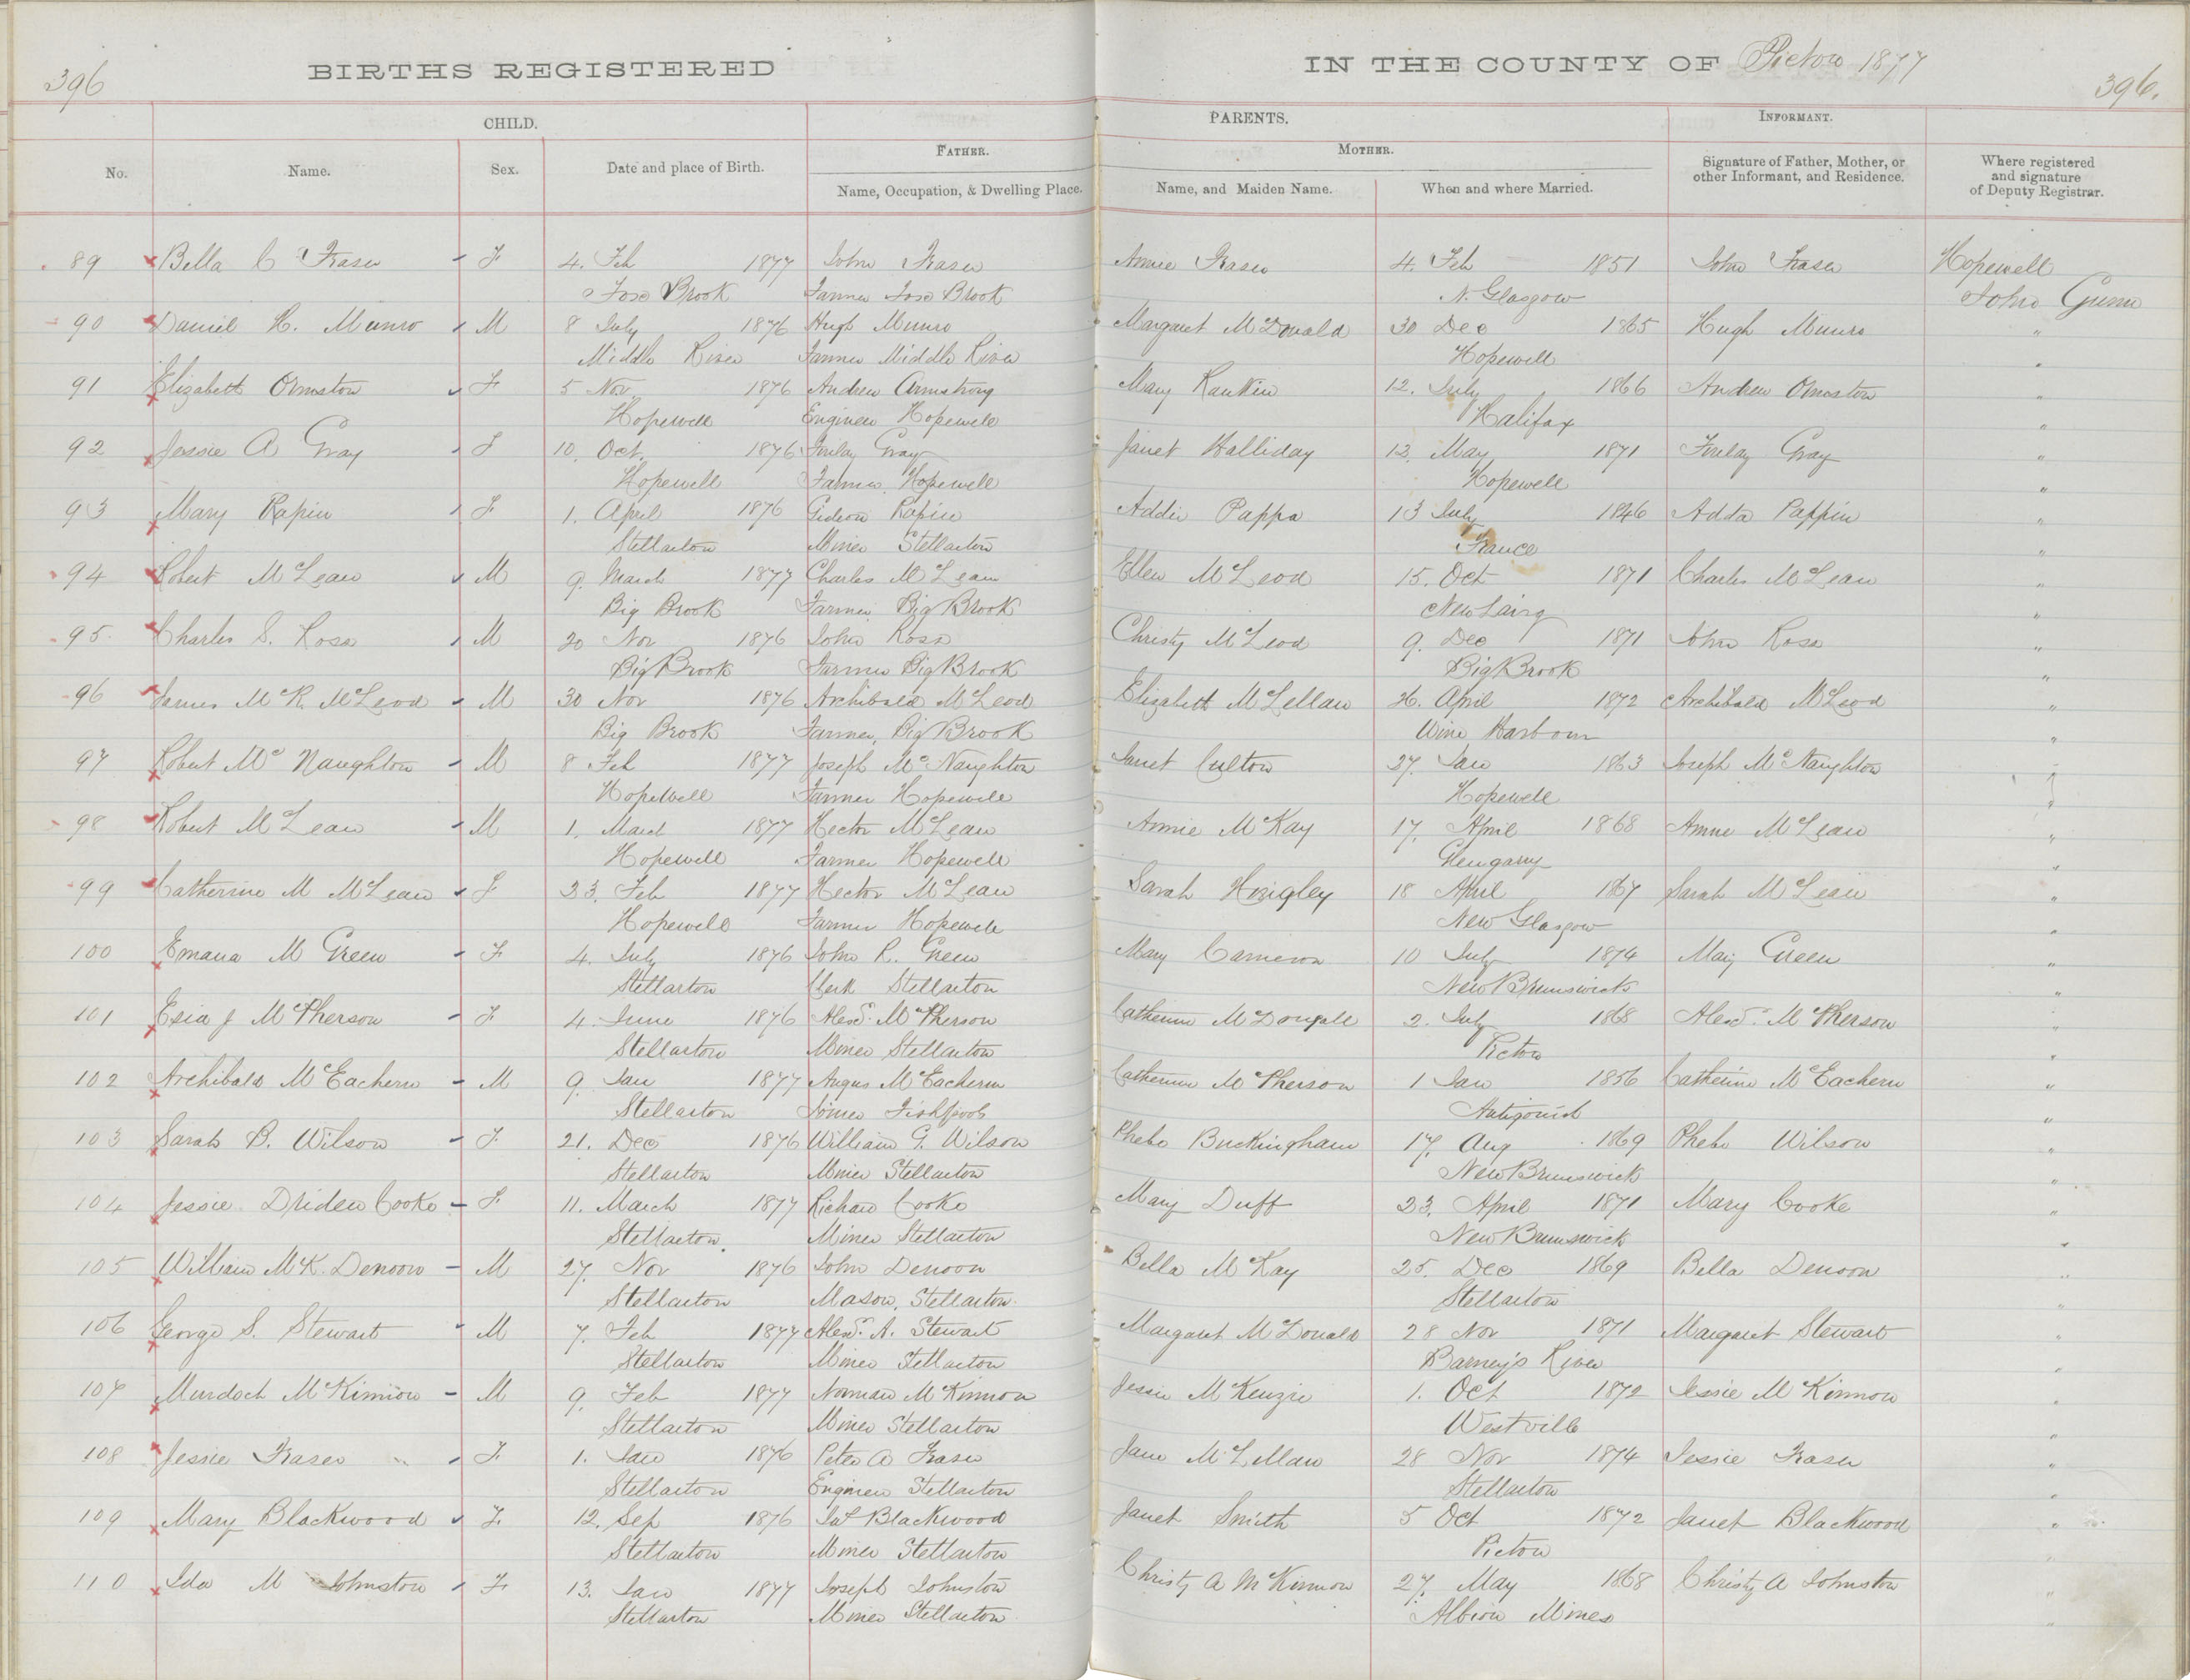 396
BIRTHS REGISTERED IN THE COUNTY OF Pictou 1877
396.
CHILD. PARENTS. INFORMANT.
FATHER. MOTHER.
No. Name. Sex. Date and place of Birth. Name, Occupation, & Dwelling Place. Name, and Maiden Name. When and where Married. Signature of Father, Mother, or other Informant, and Residence. Where registered and signature of Deputy Registrar.
89 Bella C Fraser F 4. Feb 1877 John Fraser Annie Fraser 4. Feb 1851 John Fraser Hopewell
Fox Brook Farmer Fox Brook N. Glasgow John Gunn
90 Daniel H. Munro M 8 July 1876 Hugh Munro Margaret McDonald 30 Dec 1865 Hugh Munro "
Middle River Farmer Middle River Hopewell "
91 Elizabett Ormston F 5 Nov. 1876 Andrew Armstrong Mary Rankin 12. July 1866 Andrew Ormston "
Hopewell Engineer Hopewell Halifax "
92 Jessie A Gray F 10. Oct. 1876 Finlay Gray Janet Halliday 12. May 1871 Finlay Gray "
Hopewell Farmer Hopewell Hopewell "
93 Mary Papin F 1. April 1876 Gideon Papin Addie Pappa 13 July 1846 Adda Pappin "
Stellarton Miner Stellarton France "
94 Robert McLean M 9. March 1877 Charles McLean Ellen McLeod 15. Oct 1871 Charles McLean "
Big Brook Farmer Big Brook New Lairg "
95. Charles S. Ross M 20 Nov 1876 John Ross Christy McLeod 9. Dec 1871 John Ross "
Big Brook Farmer Big Brook Big Brook "
96 James McR. McLeod M 30 Nov 1876 Archibald McLeod Elizabett McLellan 26. April 1872 Archibald McLeod "
Big Brook Farmer, Big Brook Wine Harbour "
97 Robert McNaughton M 8 Feb 1877 Joseph McNaughton Janet Culton 27. Jan 1863 Joseph McNaughton "
Hopewell Farmer Hopewell Hopewell "
98 Robert McLean M 1. March 1877 Hector McLean Annie McKay 17. April 1868 Annie McLean "
Hopewell Farmer Hopewell Glengarry "
99 Catherine M McLean F 23. Feb 1877 Hector McLean Sarah 18 April 1867 Sarah McLean "
Hopewell Farmer Hopewell New Glasgow "
100 Emana M Green F 4. July 1876 John R. Green Mary Cameron 10 July 1874 Mary Green "
Stellarton Clerk Stellarton New Brunswick "
101 J McPherson F 4. June 1876 Alexd. McPherson Catherine McDougall 2. July 1868 Alexd. McPherson "
Stellarton Miner Stellarton Pictou "
102 Archibald McEachern M 9. Jan 1877 Angus McEachern Catherine McPherson 1 Jan 1856 Catherine McEachern "
Stellarton Joiner Fishpools Antigonish "
103 Sarah B. Wilson F. 21. Dec 1876 William G. Wilson Phebe Buckingham 17. Aug 1869 Phebe Wilson "
Stellarton Miner Stellarton New Brunswick "
104 Jessie Driden Cooke F. 11. March 1877 Richard Cooke Mary Duff 23. April 1871 Mary Cooke "
Stellarton. Miner Stellarton New Brunswick "
105 William McK. Denoon M 27. Nov 1876 John Denoon Bella McKay 25. Dec 1869 Bella Denoon "
Stellarton Mason, Stellarton. Stellarton "
106 George S. Stewart M 7. Feb 1877 Alexd. A. Stewart Margaret McDonald 28 Nov 1871 Margaret Stewart "
Stellarton Miner Stellarton Barney's River "
107 Murdoch McKinnon M 9. Feb 1877 Norman McKinnon Jessie McKenzie 1. Oct 1872 Jessie McKinnon "
Stellarton Miner Stellarton Westville "
108 Jessie Fraser F. 1. Jan 1876 Peter A Fraser Jane McLellan 28 Nov 1874 Jessie Fraser "
Stellarton Engineer Stellarton Stellarton "
109 Mary Blackwood F. 12. Sep 1876 Blackwood Janet Smith 5 Oct 1872 Janet Blackwood "
Stellarton Miner Stellarton Pictou "
110 Ida M Johnston F 13. Jan 1877 Joseph Johnston Christy A McKinnon 27. May 1868 Christy A Johnston "
Stellarton Miner Stellarton Albion Mines "